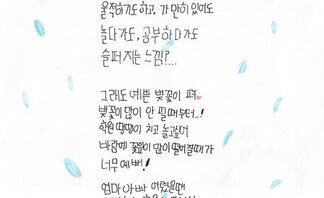 울적하기도 하고, 가만히 있어도
놀다가도, 공부하다가도
슬퍼지는 느낌?...
그래도 예쁜 벚꽃이 펴
벚꽃이 많이 안 필때부터..!
학원 땡땡이 치고 놀고싶어
바람에 꽃잎이 많이 떨어질때가
너무 예뻐!
엄마 아빠 어렸을땐